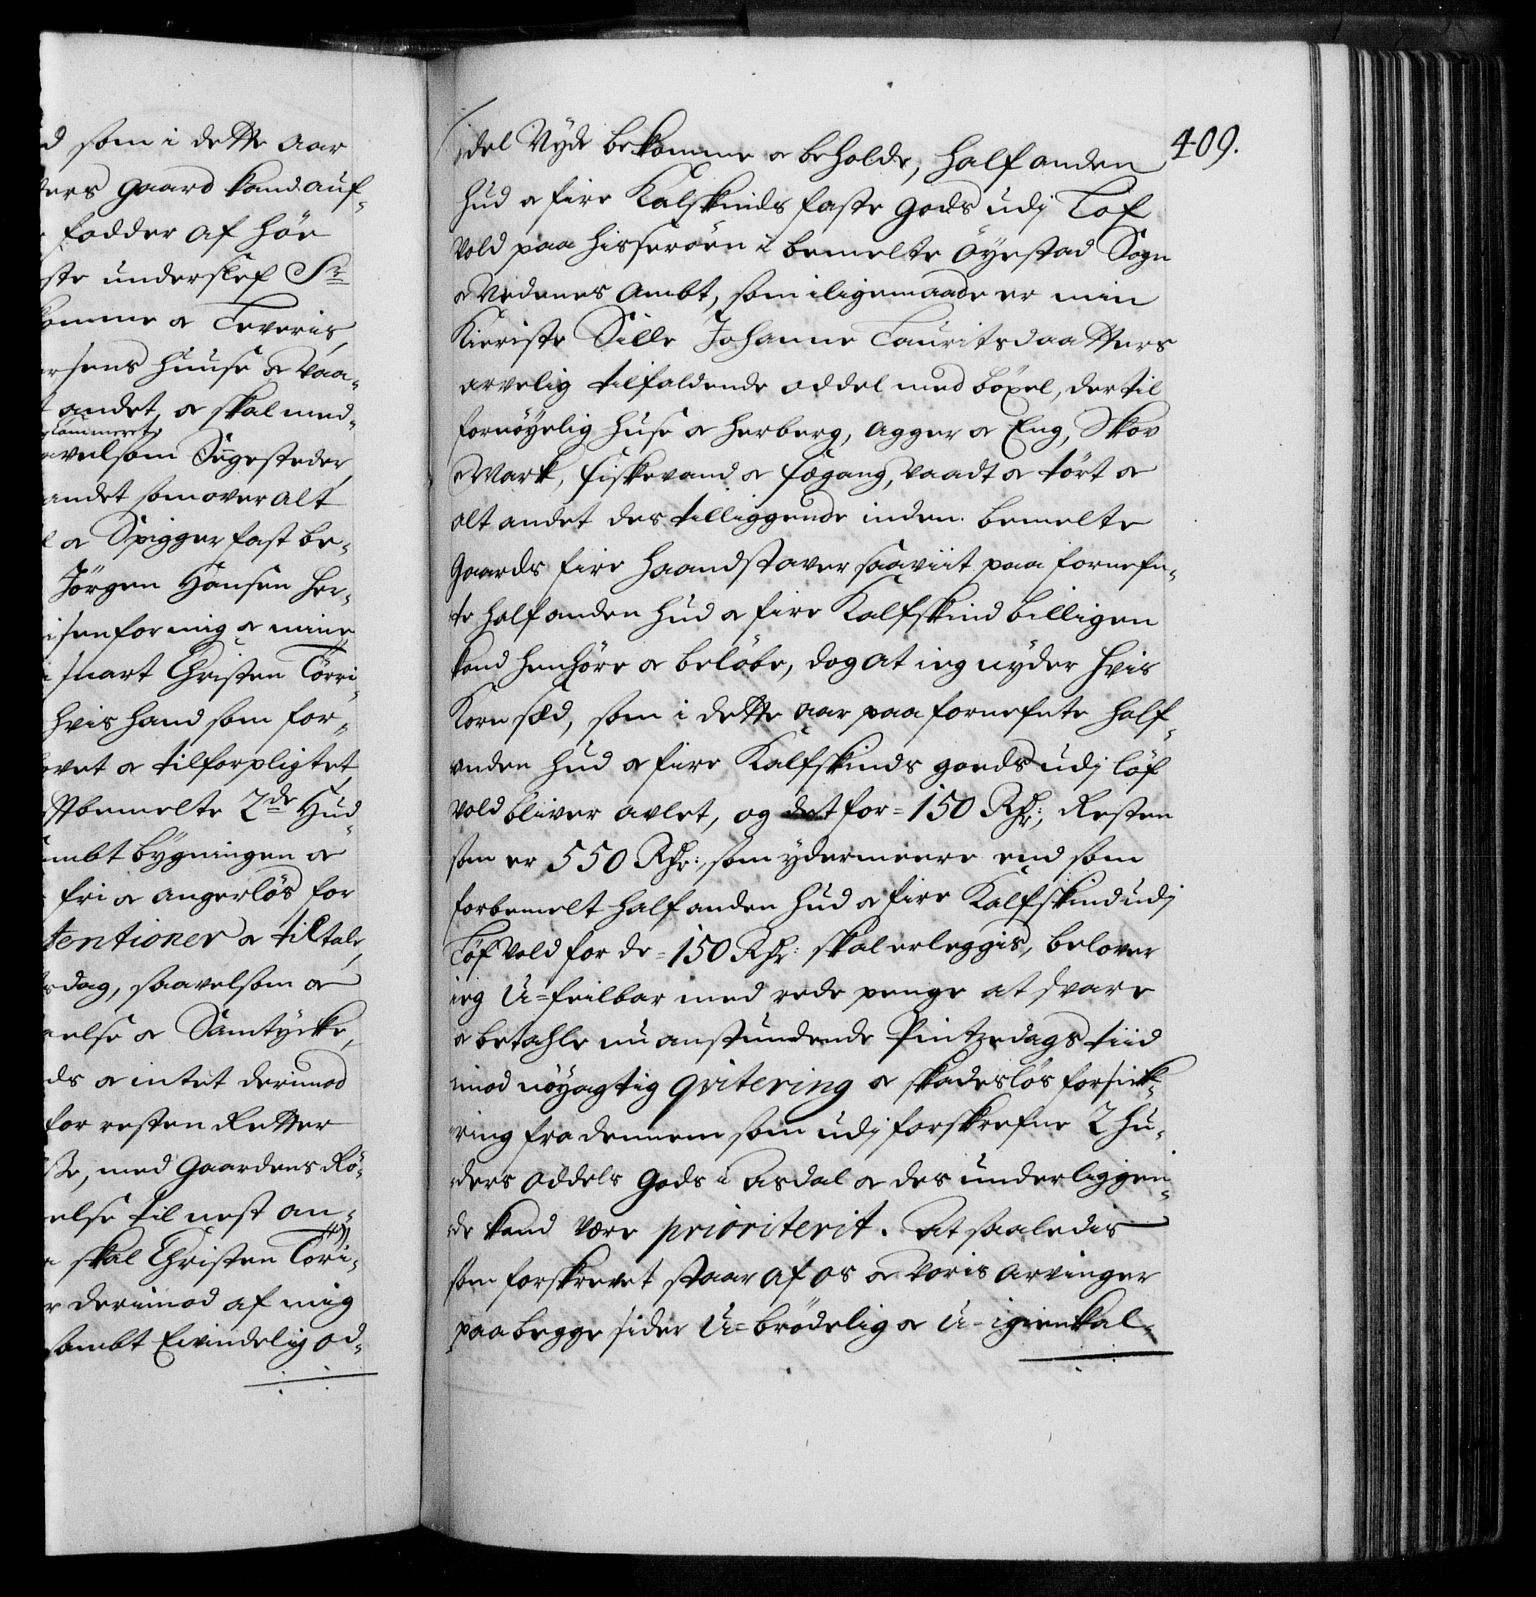 d som i dette Aar
ters gaard kand auf-
fodder af höe
ste underslef Sr
komme & Leveris,
rsens huuse & Vaa-
andet, & skal med-
lammeret
velsom Sögesteder,
andet som over alt
l & Spiggerfast be-
Jörgen Hansen her-
isen for mig & mine
snart Christen Törri-
hvis hand som for-
vet & tilforpligtet
bemelte 2de Hud-
ambt bygningen &
fri & angerlös for
tentioner & tiltale,
sdag, saavelsom &
else & Samtycke,
ds & intet derimod
for resten Retter
, med Gaardens Rö-
else til nest an-
skal Christen Tori-
r derimod af mig
sambt Evindelig od-
409.
del Nyde bekomme & beholde, half anden
hud & fire Kalfskinds faste gods udj Löf
vold paa hisseröen i bemelte öyestad Sogn
& Nedenes Ambt, som iligemaade er min
Kieriste Sille Johanne Lauritsdaatters
arvelig tilfaldende oddel med böxel, der til
fornöyelig huse & herberg, Agger & Eng, Skov
& Mark, fiskevand & fægang, vaadt & tört &
alt andet des tilliggende inden bemelte
gaards fire haandstaver saaviit paa fornefn-
te half anden hud & fire Kalfskind billigen
kand henhöre & belöbe, dog at ieg nyder hvis
Korn sæd, som i dette aar paa fornefnte half-
anden hud & fire Kalfskinds goeds udj löf
vold bliver avlet, og det for = 150 Rdr:, Resten
som er 550 Rdr:, som ydermeere end som
forbemelt half anden hud & fire Kalfskind udj
Löfvold for de = 150 Rdr: skal erleggis, belover
ieg U=feilbar med rede penge at svare
& betahle nu anstundende Pintzedags tiid
imod nöyagtig qvitering & skadeslös forsick-
ring fra dennem som udj forskrefne 2 hu-
ders oddels gods i Asdal & des underliggen-
de kand være prioriterit. At saaledis
som forskrevet staar af os & voris Arvinger
paa begge sider U=brödelig & U-igienkal-